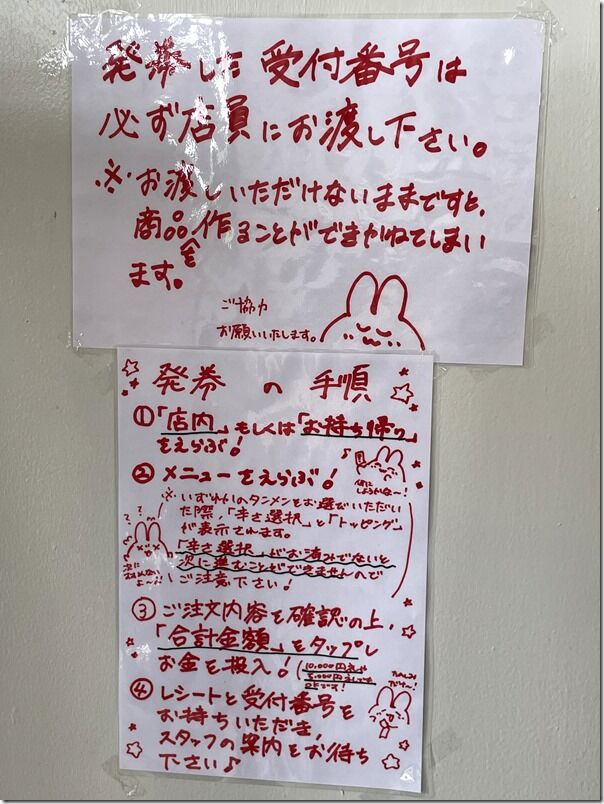 発券した受付番号は
必ず店員にお渡し下さい。
※お渡しいただけないままですと、
商品を作ることができかねてしまい
ます。
ご協力
お願いいたします。
発券の手順
①「店内」もしくは「お持ち帰り」
をえらぶ!
♪
何に
しようかな~!
②メニューをえらぶ!
※いずれかのタンメンをお選びいただい
た際、「辛さ選択」と「トッピング」
が表示されます。
「辛さ選択」がお済みでないと
次に進むことができませんので
ご注意下さい!
???
次に
すすめない
よ~!
③ご注文内容を確認の上、
「合計金額」をタップし
お金を投入!(10,000円札や
5,000円札でも
OKです!
④レシートと受付番号を
お持ちいただき、
スタッフの案内をお待ち
下さい♪
たのしみ
だな~!